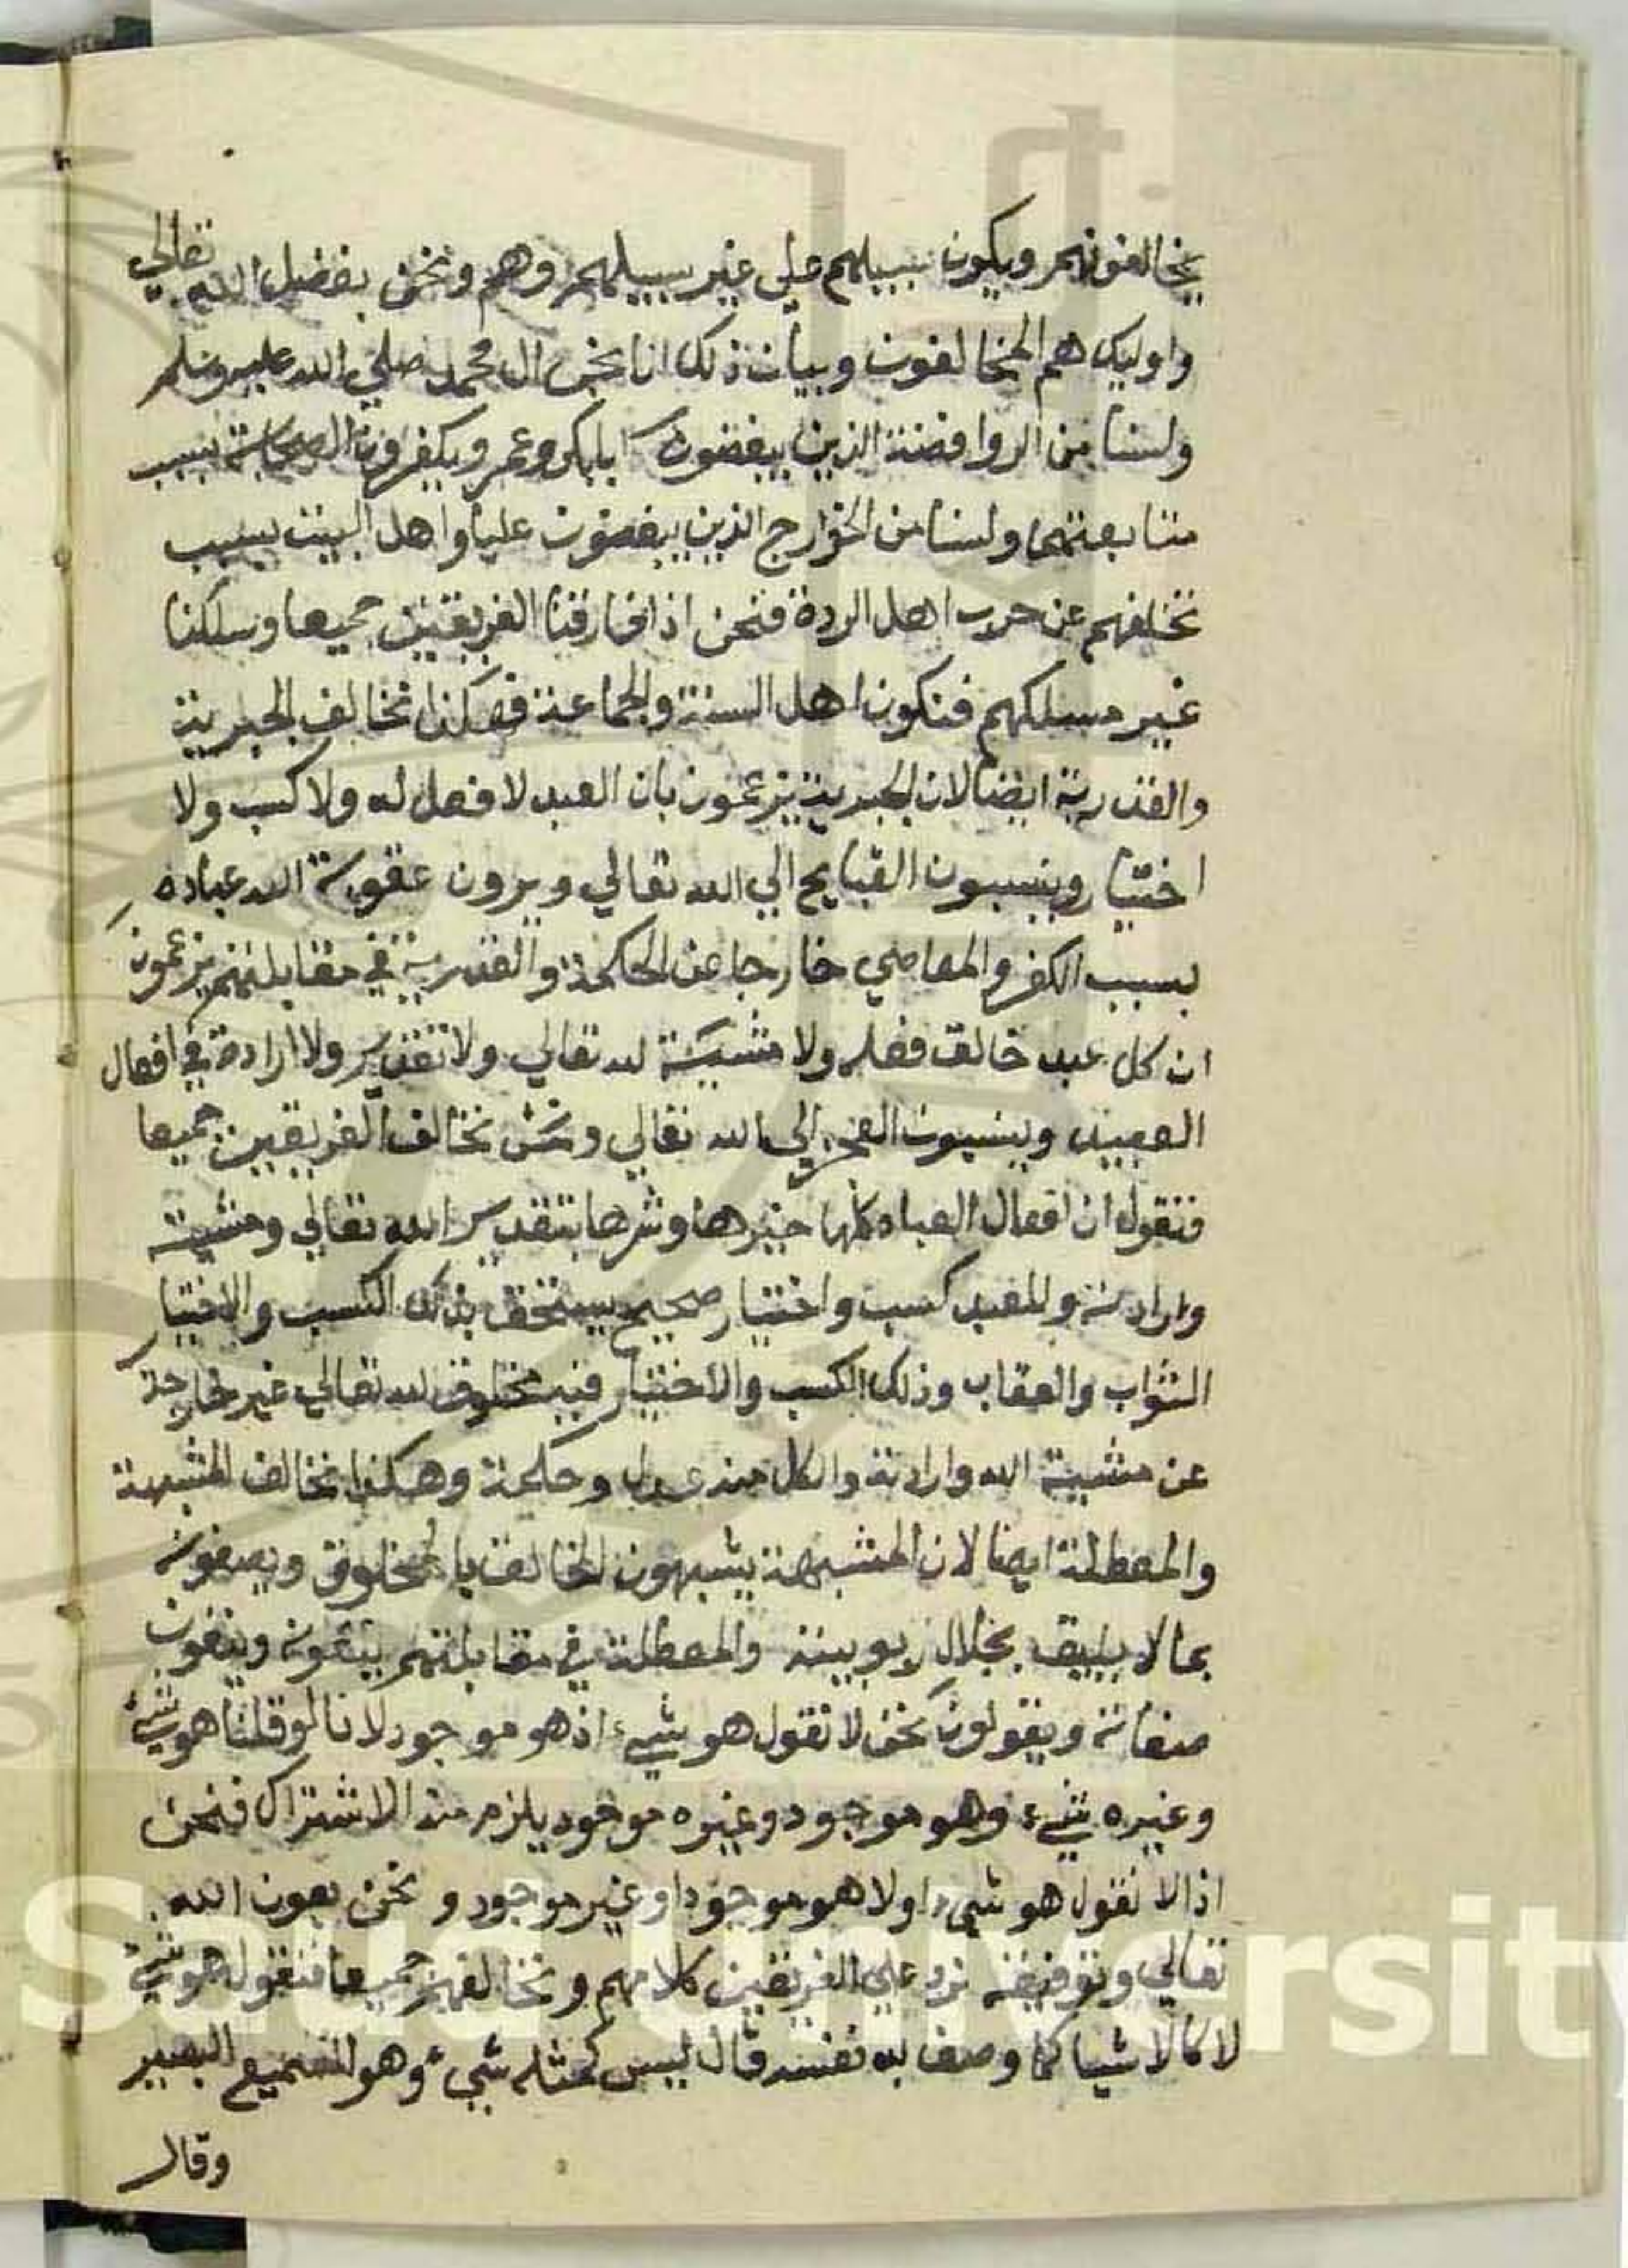 يخالفونهم ويكون سبيلهم علي غير سبيلهم وهم ونحن بفضل الله تعالي
واوليك هم المخالفون وبيان ذلك انا نحن ال محمد صلي الله عليه وسلم
ولسنا من الروافضة الذين يبغضون ابابكر وعمر ويكفرون الصحابة بسبب
متابعتهما ولسنا من الخوارج الذين يبغضون عليا واهل البيت بسبب
تخلفهم عن حرب اهل الردة فنحن اذا فارقنا الفريقين جميعا وسلكنا
غير مسلكهم فنكون اهل السنة والجماعة فهكذا نخالف الجبرية
والقدرية ايضا لان الجبرية يزعمون بان العبد لا فعل له ولا كسب ولا
اختيار وينسبون القبايح الي الله تعالي ويرون عقوبة الله عباده
بسبب الكفر والمعاصي خارجا عن الحكمة والقدرية في مقابلتهم يزعمون
ان كل عبد خالق فعله ولا مشية لله تعالي ولا تقدير ولا ارادة في افعال
العبيد وينسبون العجز الي الله تعالي ونحن نخالف الفريقين جميعا
فنقول ان افعال العباد كلها خيرها وشرها بتقدير الله تعالي ومشيته
وارادته وللعبد كسب واختيار صحيح يستحق بذلك الكسب والاختيار
الثواب والعقاب وذلك الكسب والاختيار فيه مخلوق لله تعالي غير خارجة
عن مشية الله وارادته والكل منه عدل وحكمة وهكذا نخالف المشبهة
والمعطلة ايضا لان المشبهة يشبهون الخالق بالمخلوق ويصفونه
بما لا يليق بجلال ربوبيته والمعطلة في مقابلتهم ينفونه وينفون
صفاته ويقولون نحن لا نقول هو شيء اذ هو موجود لانا لو قلنا هو شيء
وغيره شيء وهو موجود وغيره موجود يلزم منه الاشتراك فنحن
اذا لا نقول هو شيء او لا هو موجود او غير موجود ونحن بعون الله
تعالي وتوفيقه نرد علي الفريقين كلامهم ونخالفهم جميعا فنقول هو شيء
لا كالاشيا كما وصف به نفسه قال ليس كمثله شيء وهو السميع البصير
وقال
Saud University